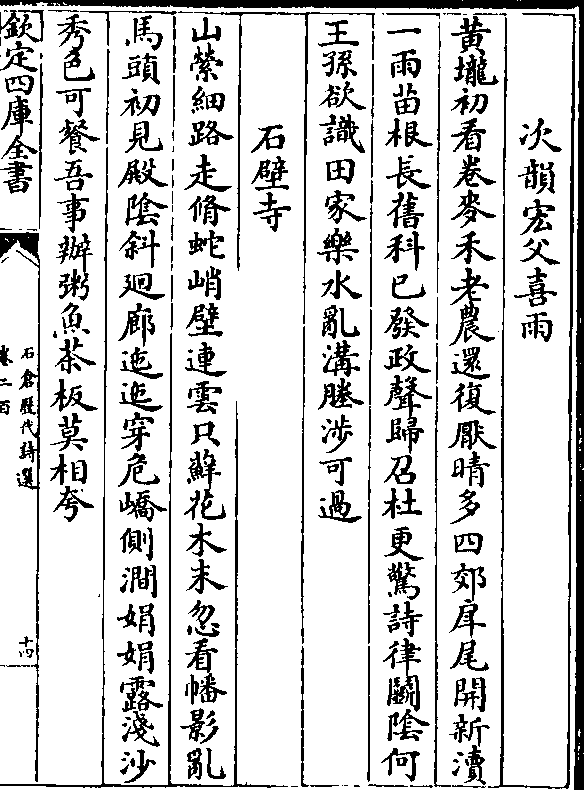 次韻宏父喜雨
黃壠初看卷麥禾老農還復厭晴多四郊戽尾開新瀆
一雨苗根長舊科已發政聲歸召杜更驚詩律鬭陰何
王孫欲識田家樂水亂溝塍涉可過
石壁寺
山縈細路走脩蛇峭壁連雲只蘚花木末忽看幡影亂
馬頭初見殿陰斜廻廊迤迤穿危嶠側澗娟娟露淺沙
秀色可餐吾事辦粥魚茶板莫相夸
欽定四庫全書
石倉歷代詩選
卷二百
十四